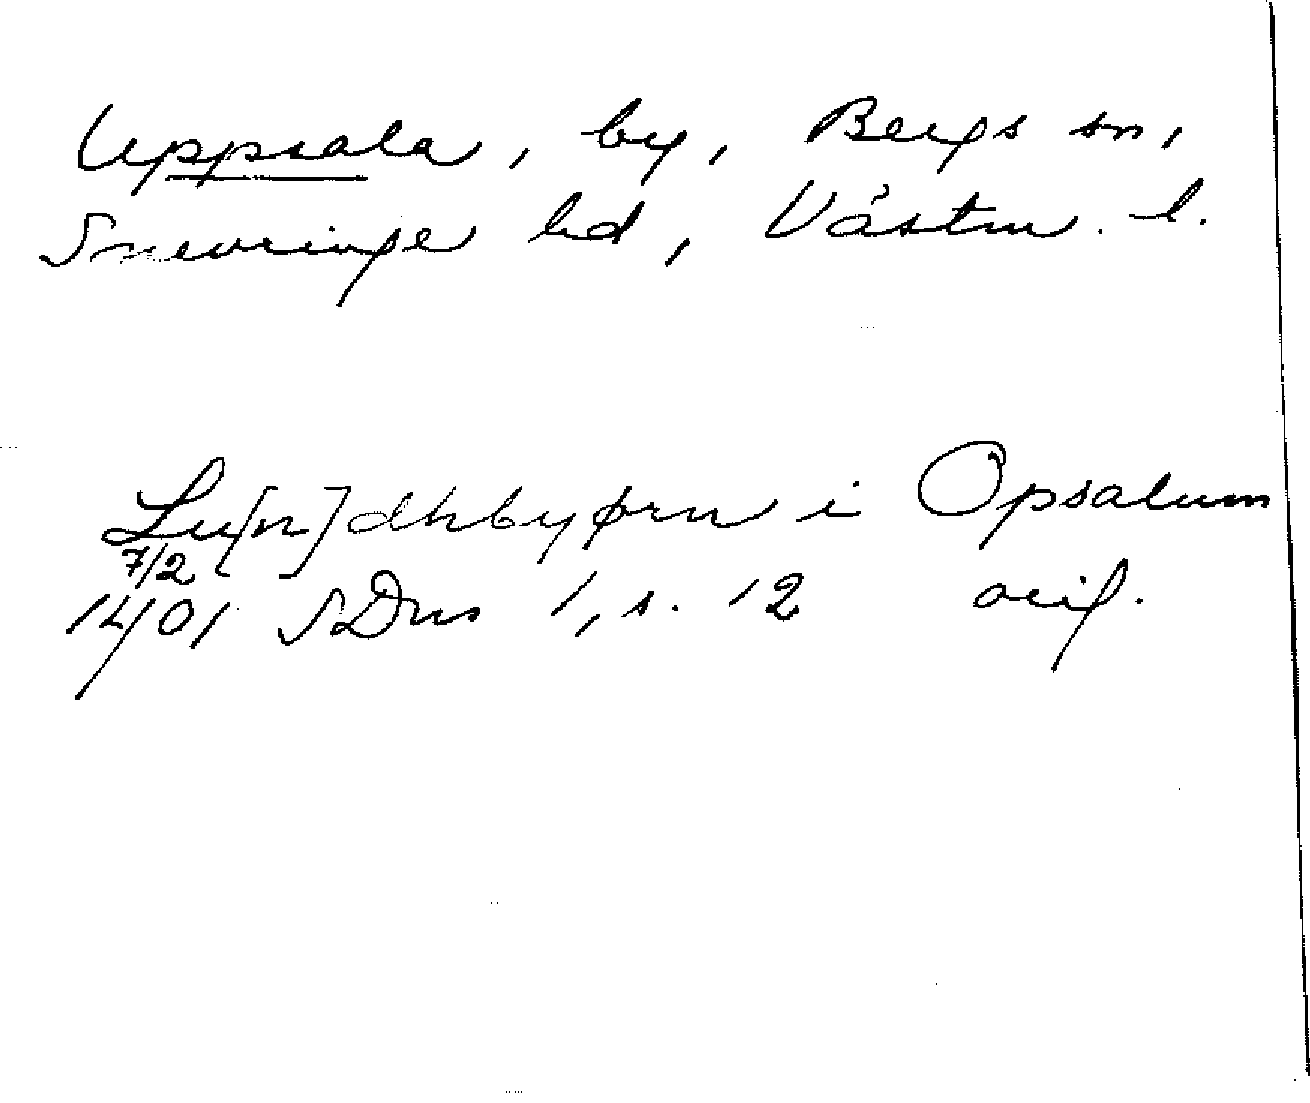 Uppsala, by, Bergs sn,
Snevringe hd, Västm. l.
Lu[n]dhbyørn i Opsalum
7/2
1401 SDns 1, s. 12 orig.